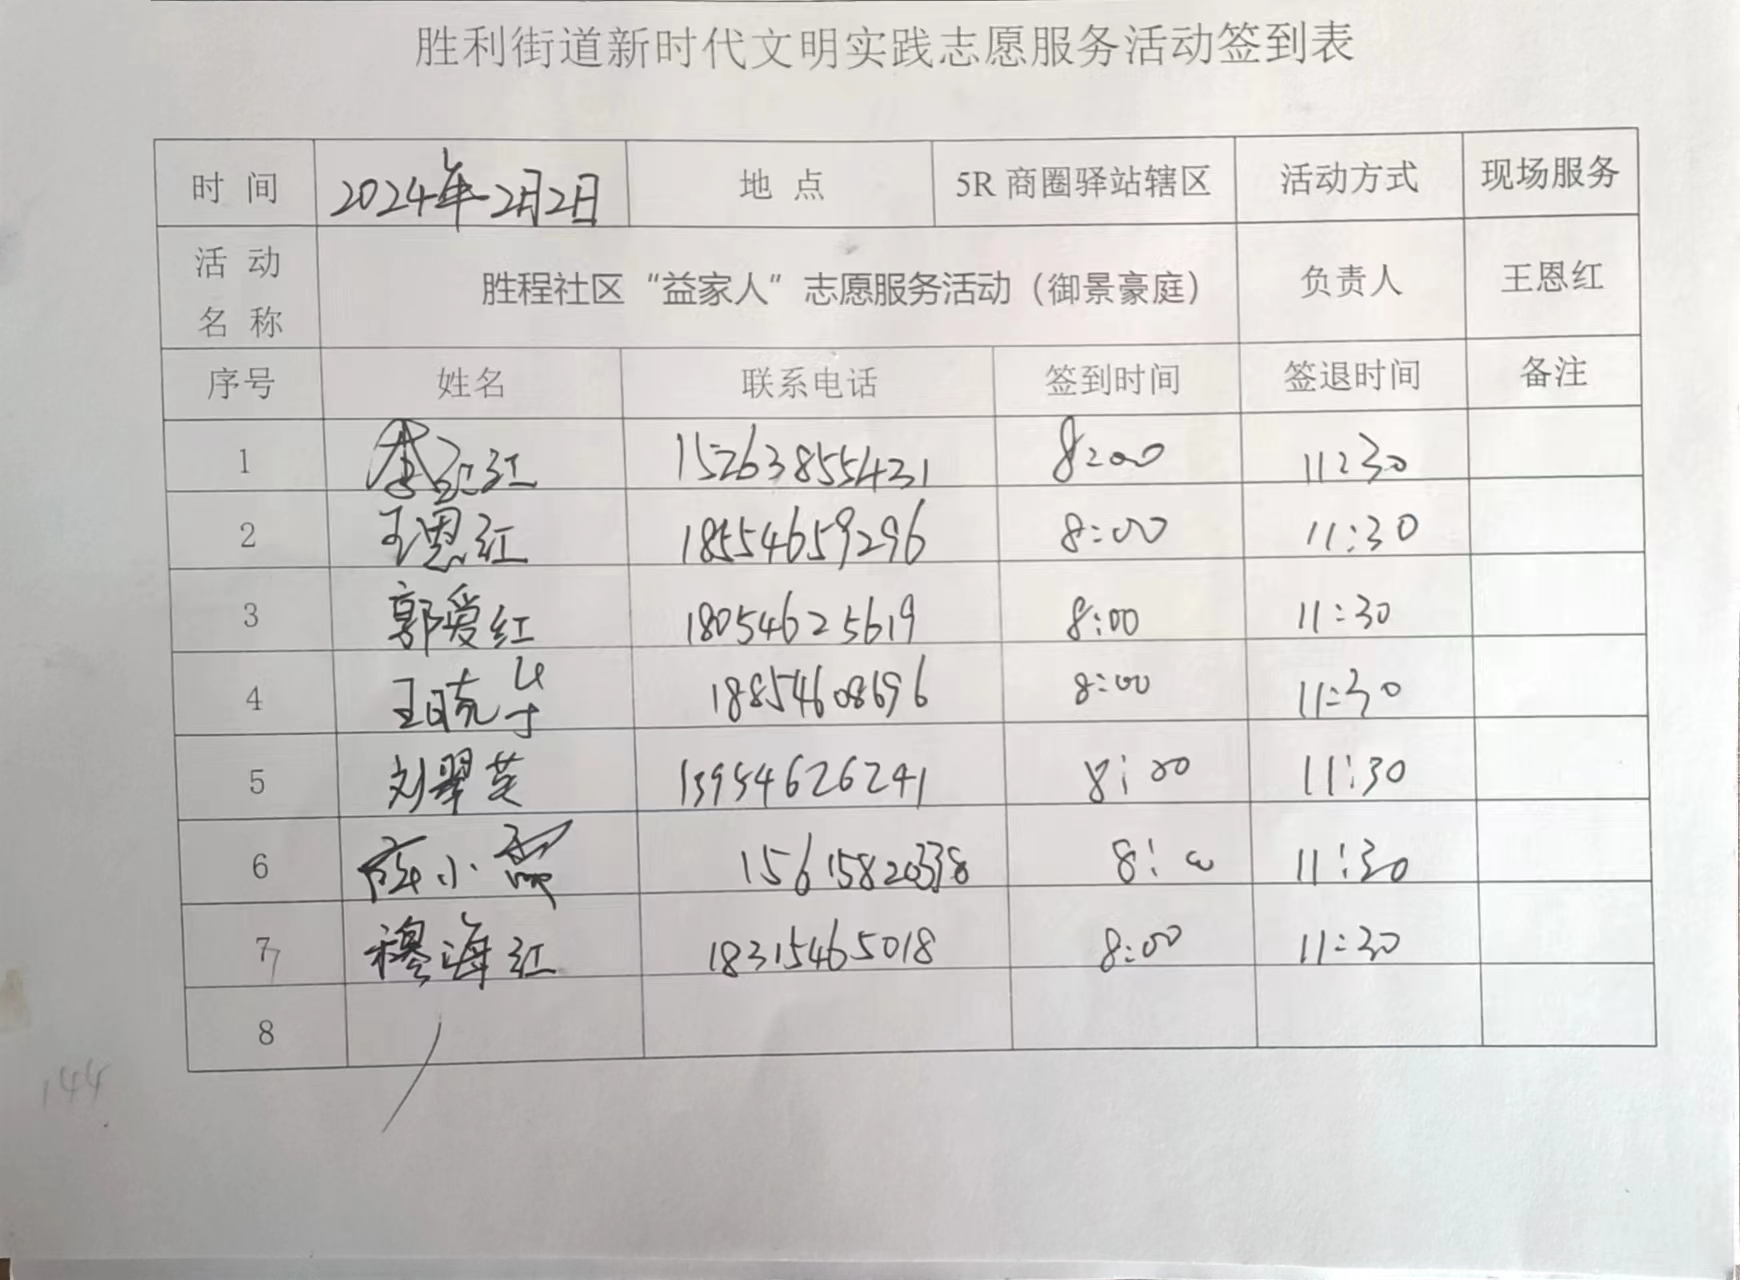 胜利街道新时代文明实践志愿服务活动签到表
时间 2024年2月2日 地点 5R商圈驿站辖区 活动方式 现场服务
活动名称 胜程社区“益家人”志愿服务活动（御景豪庭） 负责人 王恩红
序号 姓名 联系电话 签到时间 签退时间 备注
1 李红红 15263855431 8:00 11:30
2 王恩红 18554659296 8:00 11:30
3 郭爱红 18054625619 8:00 11:30
4 王晓 18854608696 8:00 11:30
5 刘翠英 13954626241 8:00 11:30
6 小 15615820338 8:00 11:30
7 穆海红 18315465018 8:00 11:30
8
144